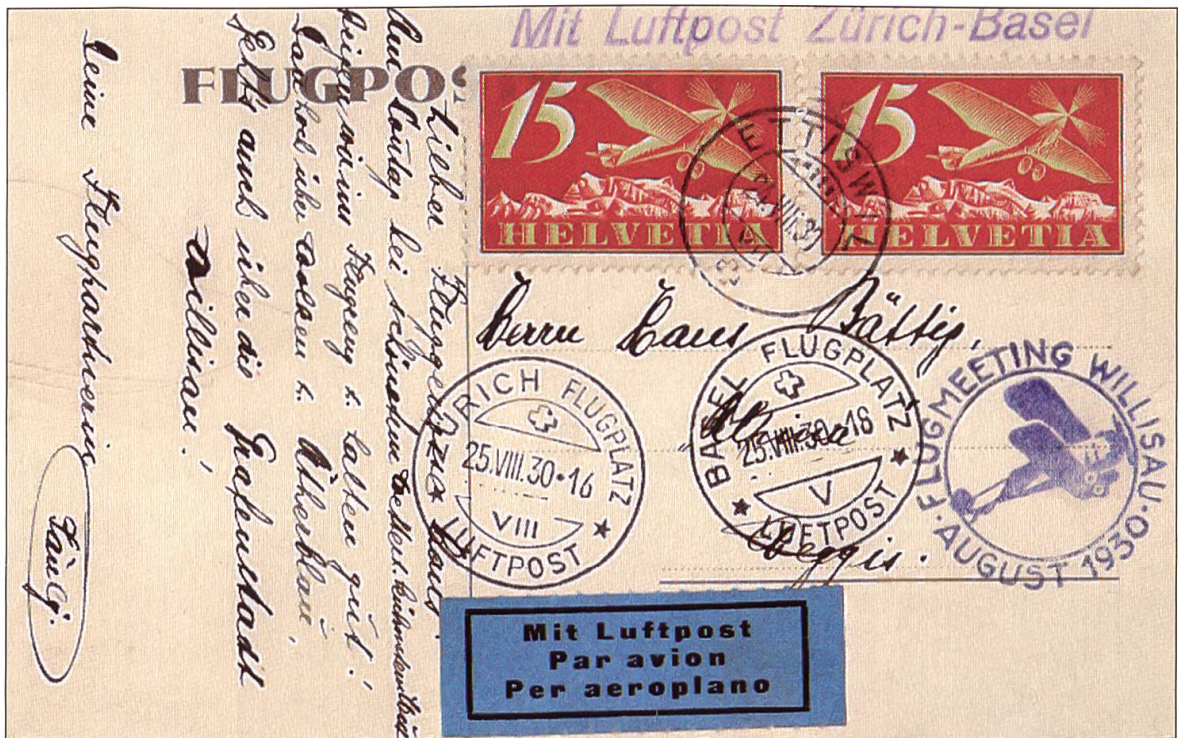 Mit Luftpost Zürich-Basel
FLUGPOS
15
HELVETIA
15
HELVETIA
ETTISWIL
VIII.30
Herrn Hans Bättig,
Weggis.
ZÜRICH FLUGPLATZ
25.VIII.30·16
VIII
LUFTPOST
BASEL FLUGPLATZ
25.VIII.30·18
V
LUFTPOST
FLUGMEETING WILLISAU
AUGUST 1930
Mit Luftpost
Par avion
Per aeroplano
Lieber Hans!
Am Sonntag bei schönstem Wetter u.
wir ins Flugzeug u. hatten gut!
hoch über Wolken u. Ätherblau,
auch über die Grafenstadt
Willisau!
Deine Flugpartnerin